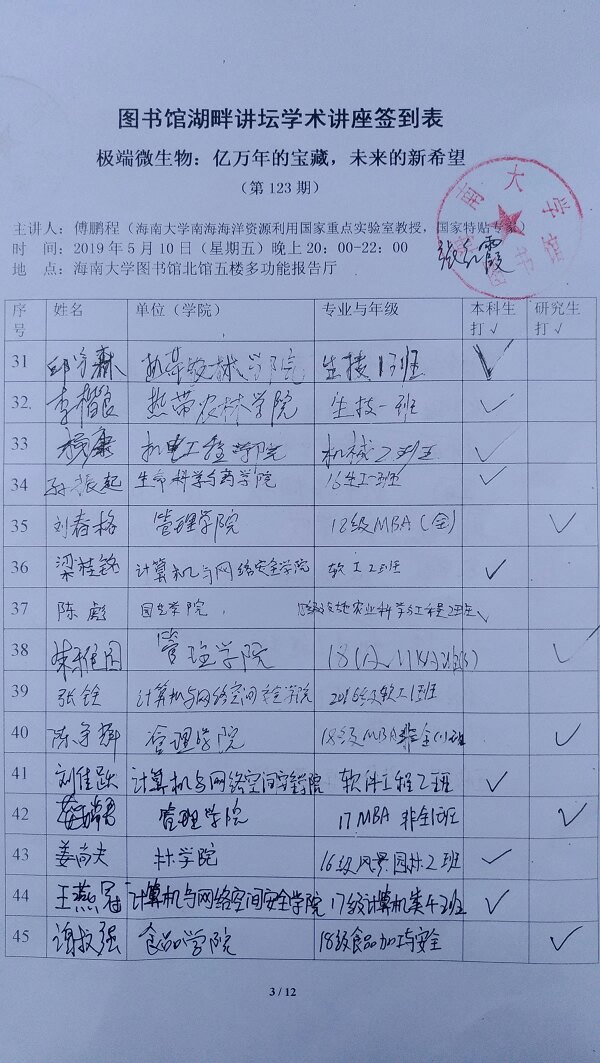 图书馆湖畔讲坛学术讲座签到表
极端微生物：亿万年的宝藏，未来的新希望
（第 123 期）
主讲人：傅鹏程（海南大学南海海洋资源利用国家重点实验室教授，国家特贴专
时 间：2019 年 5 月 10 日（星期五）晚上 20：00-22：00
地 点：海南大学图书馆北馆五楼多功能报告厅
南大学 图书馆
张红霞
序号 姓名 单位（学院） 专业与年级 本科生打√ 研究生打√
31 热带农林学院 生技1班 √
32. 李楷良 热带农林学院 生技一班 √
33 杨康 机电工程学院 机械2班 √
34 孙振起 生命科学与药学院 16生工一班 √
35 刘春格 管理学院 18级MBA（全） √
36 梁桂铭 计算机与网络安全学院 软工2班 √
37 陈彪 学院 农业科学与工程2班 √
38 管理学院 √
39 张铨 计算机与网络空间安全学院 2016级软工1班
40 管理学院 18级MBA非全(1)班 √
41 刘佳跃 计算机与网络空间安全学院 软件工程2班 √
42 管理学院 17MBA 非全1班 √
43 姜尚夫 林学院 16级风景园林2班 √
44 王燕冠 计算机与网络空间安全学院 17级计算机类4班 √
45 谢权强 食品学院 18级食品加工与安全 √
3 / 12